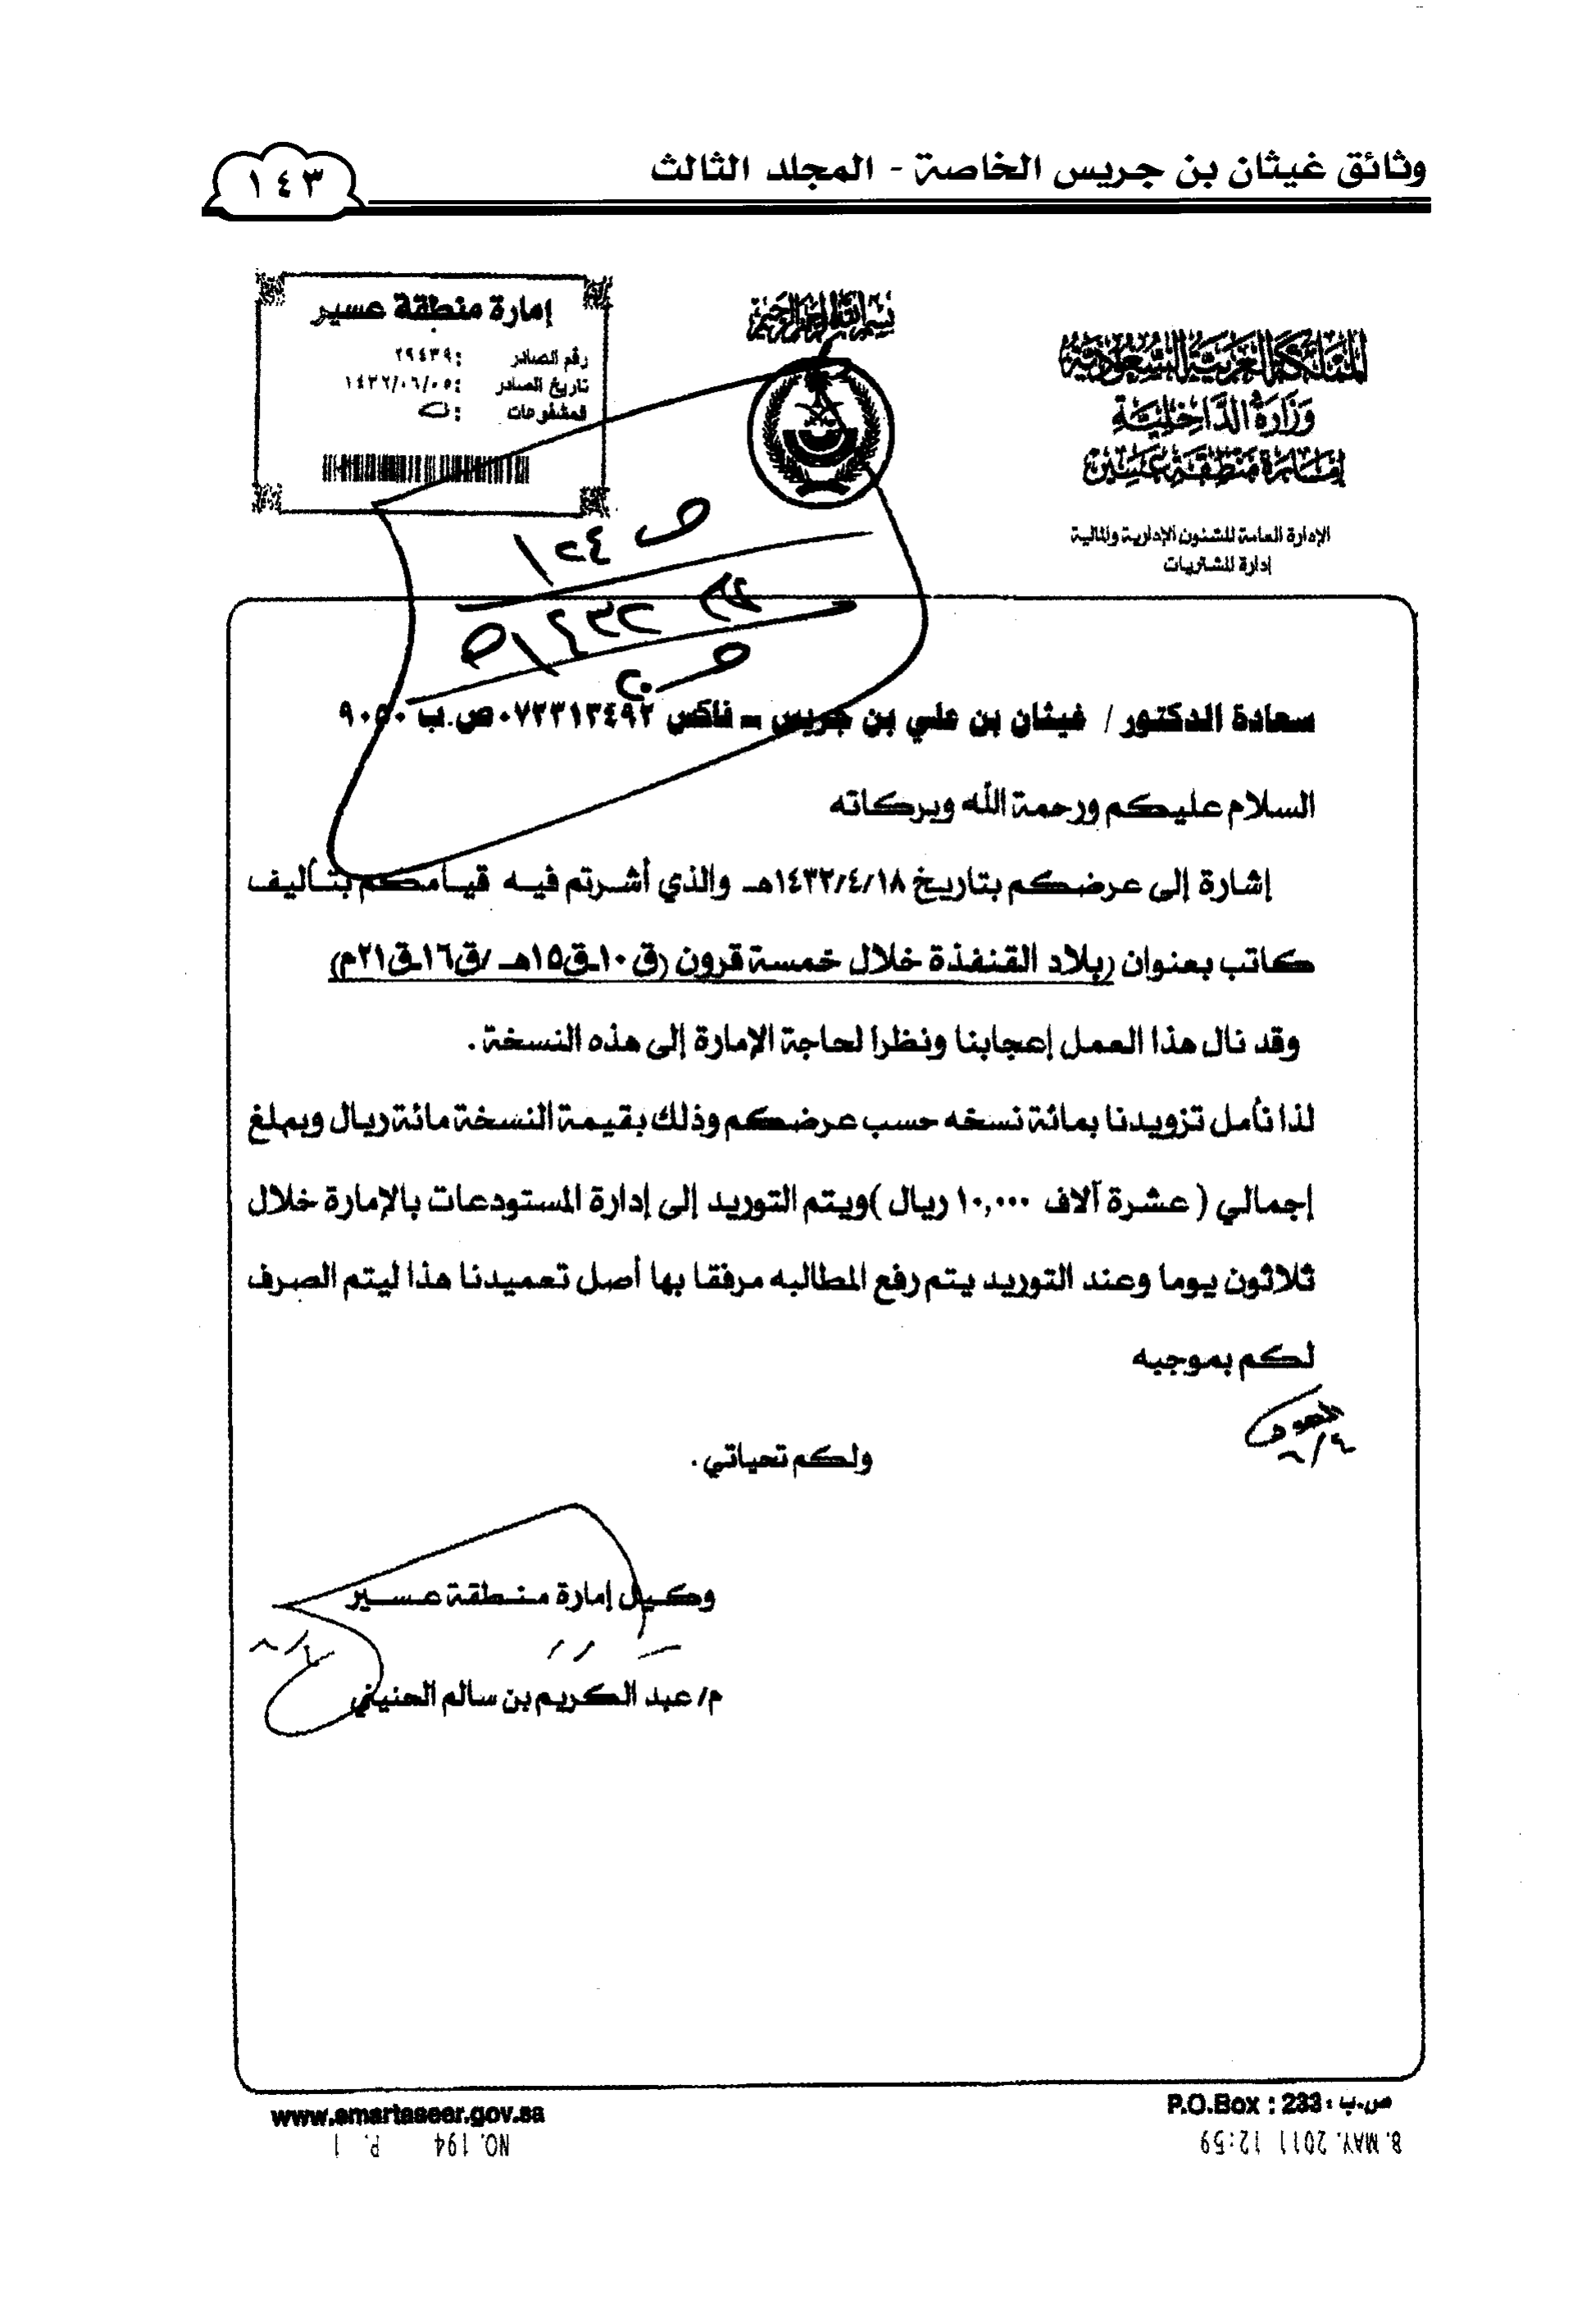 وثائق غيثان بن جريس الخاصة - المجلد الثالث
١٤٣
بسم الله الرحمن الرحيم
المملكة العربية السعودية
وزارة الداخلية
إمارة منطقة عسير
الإدارة العامة للشئون الإدارية والمالية
إدارة المشتريات
إمارة منطقة عسير
رقم الصادر : ٢٩٤٣٩
تاريخ الصادر : ١٤٣٢/٠٦/٠٥
المشفوعات :
سعادة الدكتور / غيثان بن علي بن جريس – فاكس ٠٧٢٣١٣٤٩٢ ص.ب ٩٠٥٠
السلام عليكم ورحمة الله وبركاته
إشارة إلى عرضكم بتاريخ ١٤٣٢/٤/١٨هـ والذي أشرتم فيه قيامكم بتأليف
كاتب بعنوان (بلاد القنفذة خلال خمسة قرون (ق١٠ـق١٥هـ /ق١٦ـق٢١م)
وقد نال هذا العمل إعجابنا ونظرا لحاجة الإمارة إلى هذه النسخة .
لذا نأمل تزويدنا بمائة نسخه حسب عرضكم وذلك بقيمة النسخة مائة ريال وبملغ
إجمالي ( عشرة آلاف ١٠,٠٠٠ ريال )ويتم التوريد إلى إدارة المستودعات بالإمارة خلال
ثلاثون يوما وعند التوريد يتم رفع المطالبه مرفقا بها أصل تعميدنا هذا ليتم الصرف
لكم بموجبه
ولكم تحياتي .
وكيل إمارة منطقة عسير
م/ عبد الكريم بن سالم الحنيني
ص.ب : P.O.Box : 233
www.emartaseer.gov.sa
8. MAY. 2011 12:59
NO. 194 P. 1